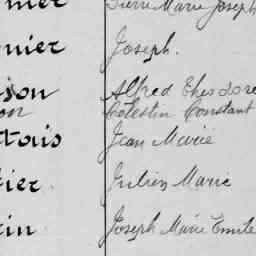 Pierre Marie Joseph
nier Joseph.
son Alfred Theodore
on Celestin Constant
tois Jean Marie
ier Julien Marie
in Joseph Marie Emile